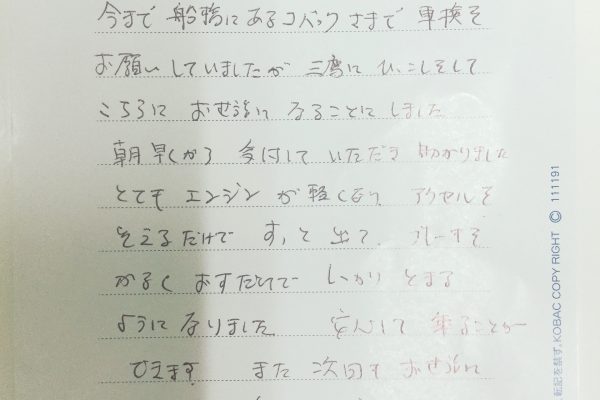 今まで 船橋にあるコバックさまで 車検を
お願いしていましたが 三鷹に ひっこしをして
こちらに お世話に なることに しました
朝早くから 受付して いただき 助かりました
とても エンジン が 軽くなり アクセルを
そえるだけで すっと 出て、ブレーキを
かるく おすだけで しっかり とまる
ように なりました 安心して 乗ることが
できます また 次回も お世話に
転記を禁ず。KOBAC COPY RIGHT © 111191